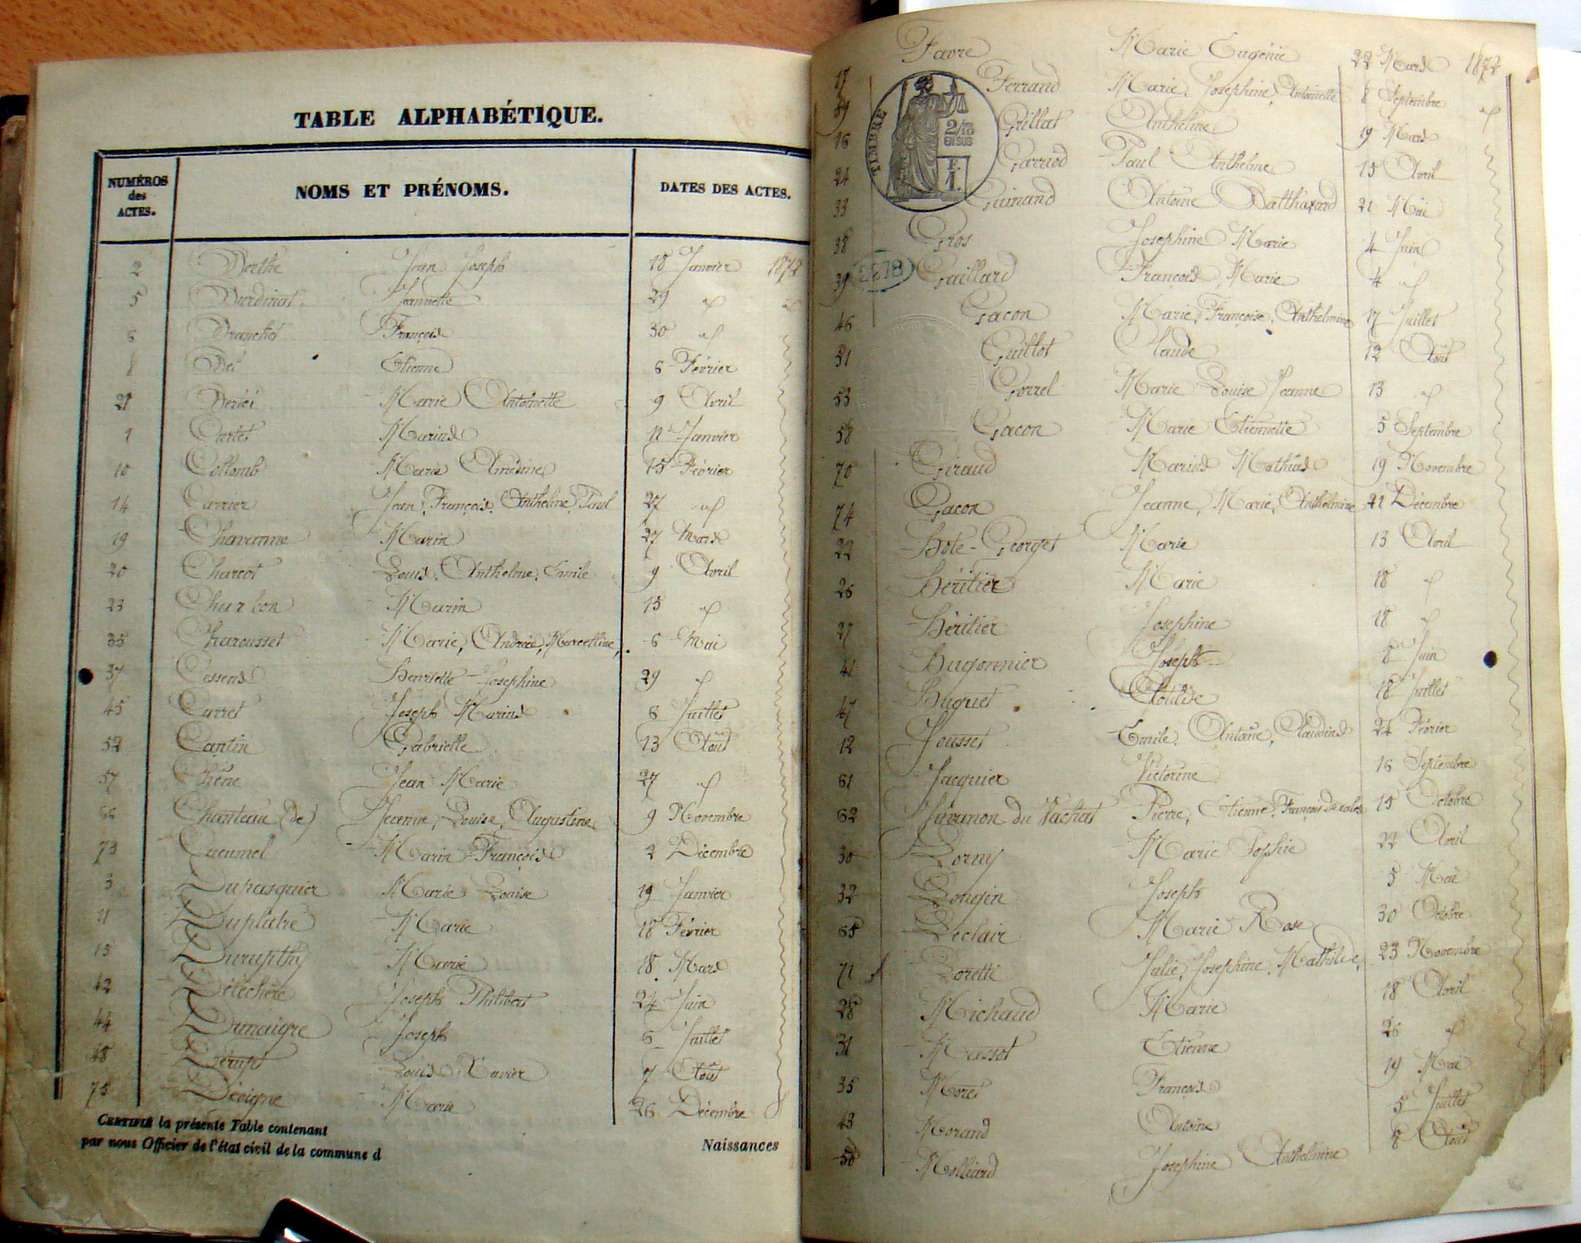 TABLE ALPHABÉTIQUE.
NUMÉROS des ACTES. NOMS ET PRÉNOMS. DATES DES ACTES.
2 Berthe Jean Joseph 18 Janvier 1872
5 Jeannette 29 d
François 30 d
Etienne 6 Février
21 Marie Antoinette 9 Avril
1 Cartet Marius 11 Janvier
10 Collomb Marie 15 Février
14 Carrier Jean, François, Anthelme, Paul 27 d
19 Chavanne Marin 27 Mars
20 Charcot Louis, Anthelme, Emile 9 Avril
23 Charbon Marin 15 d
Marie, Andréa, Marcelline, 6 Mai
37 Cessens Henriette Josephine 29 d
45 Carret Joseph Marius 8 Juillet
52 Cantin Gabrielle 13 Août
57 Chêne Jean Marie 27 d
66 Chanteau (de) Louise, Augustine 9 Novembre
73 Marin François 2 Décembre
3 Dupasquier Marie Louise 19 Janvier
11 Duplatre Marie 18 Février
15 Marie 18 Mars
42 Joseph Philibert 24 Juin
44 Dumaigre Joseph 6 Juillet
48 Louis Xavier 7 Août
75 Devigne Marie 26 Décembre
CERTIFIÉ la présente Table contenant
par nous Officier de l'état civil de la commune d
Naissances
17 Favre Marie Eugénie 22 Mars 1872
59 Ferrand Marie, Josephine, Antoinette 8 Septembre d
16 Grillat Anthelme 19 Mars
24 Paul Anthelme 15 Avril
33 Guinand Antoine Balthazard 21 Mai
38 Gros Josephine Marie 4 Juin
39 Gaillard François Marie 4 d
46 Gacon Marie, Françoise, Anthelmine 17 Juillet
51 Guillot Claude 12 Août
53 Gorrel Marie Louise Jeanne 13 d
58 Gacon Marie Etiennette 5 Septembre
70 Giraud Marius Mathias 19 Novembre
74 Gacon Jeanne, Marie, Anthelmine 21 Décembre
22 Hote-Georget Marie 13 Avril
26 Héritier Marie 18 d
27 Héritier Josephine 18 d
41 Hugonnier Joseph 8 Juin
47 Huguet Clotilde 18 Juillet
12 Jousset Emile, Antoine, Claudius 22 Février
61 Jacquier Victorine 16 Septembre
62 du Vachat Pierre, Etienne, François de Sales 15 Octobre
30 Lorny Marie Sophie 22 Avril
32 Joseph 5 Mai
65 Leclair Marie Rose 30 Octobre
71 Lorette Julie, Josephine, Mathilde, 23 Novembre
28 Michaud Marie 18 Avril
31 Etienne 26 d
35 Morel François 19 Mai
43 Morand Antoine 5 Juillet
50 Molliard Josephine Anthelmine 8 Août
TIMBRE
2/10 EN SUS
F. 1.